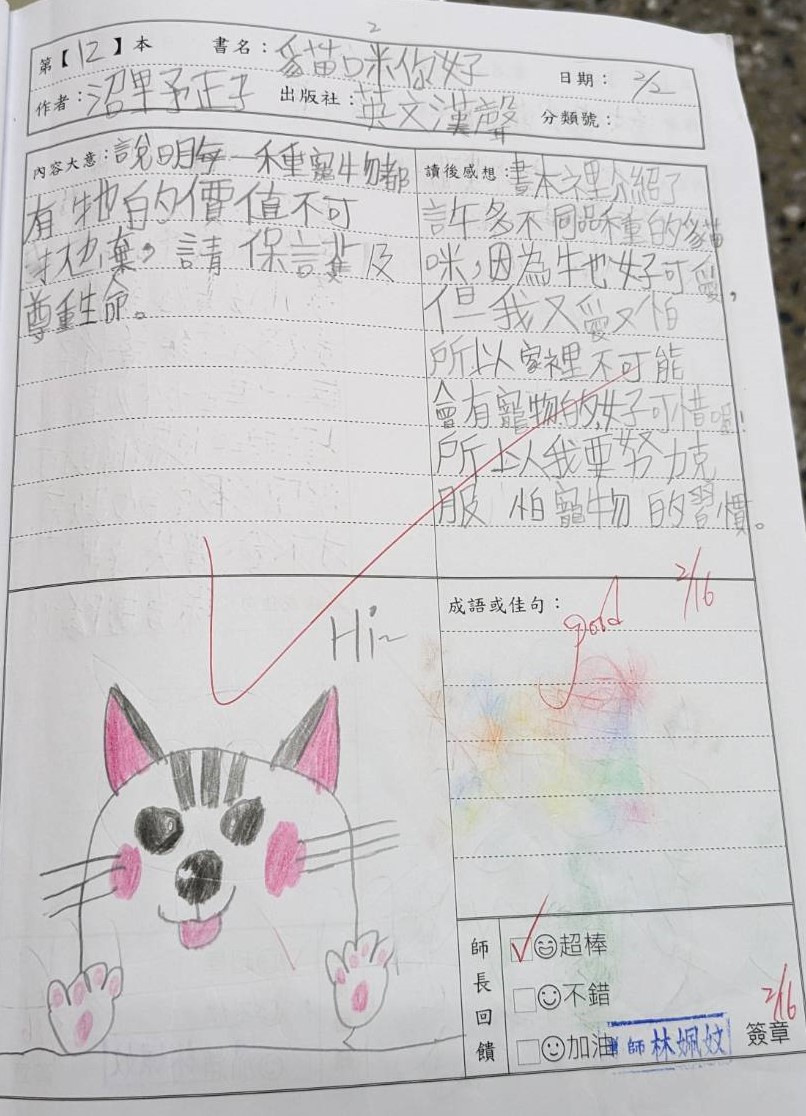 第【12】本 書名：貓咪你好 日期：2/2
作者：沼里予正子 出版社：英文漢聲 分類號：
內容大意：說明每一種寵物都
有牠的價值不可
拋棄，請保護及
尊重生命。
讀後感想：書本裡介紹了
許多不同品種的貓
咪，因為牠好可愛，
但我又愛又怕
所以家裡不可能
會有寵物的好可惜喔!
所以我要努力克
服怕寵物的習慣。
Hi~
成語或佳句：
2/16
good
師長回饋
超棒
不錯
加油
師 林姵妏
簽章
2/16